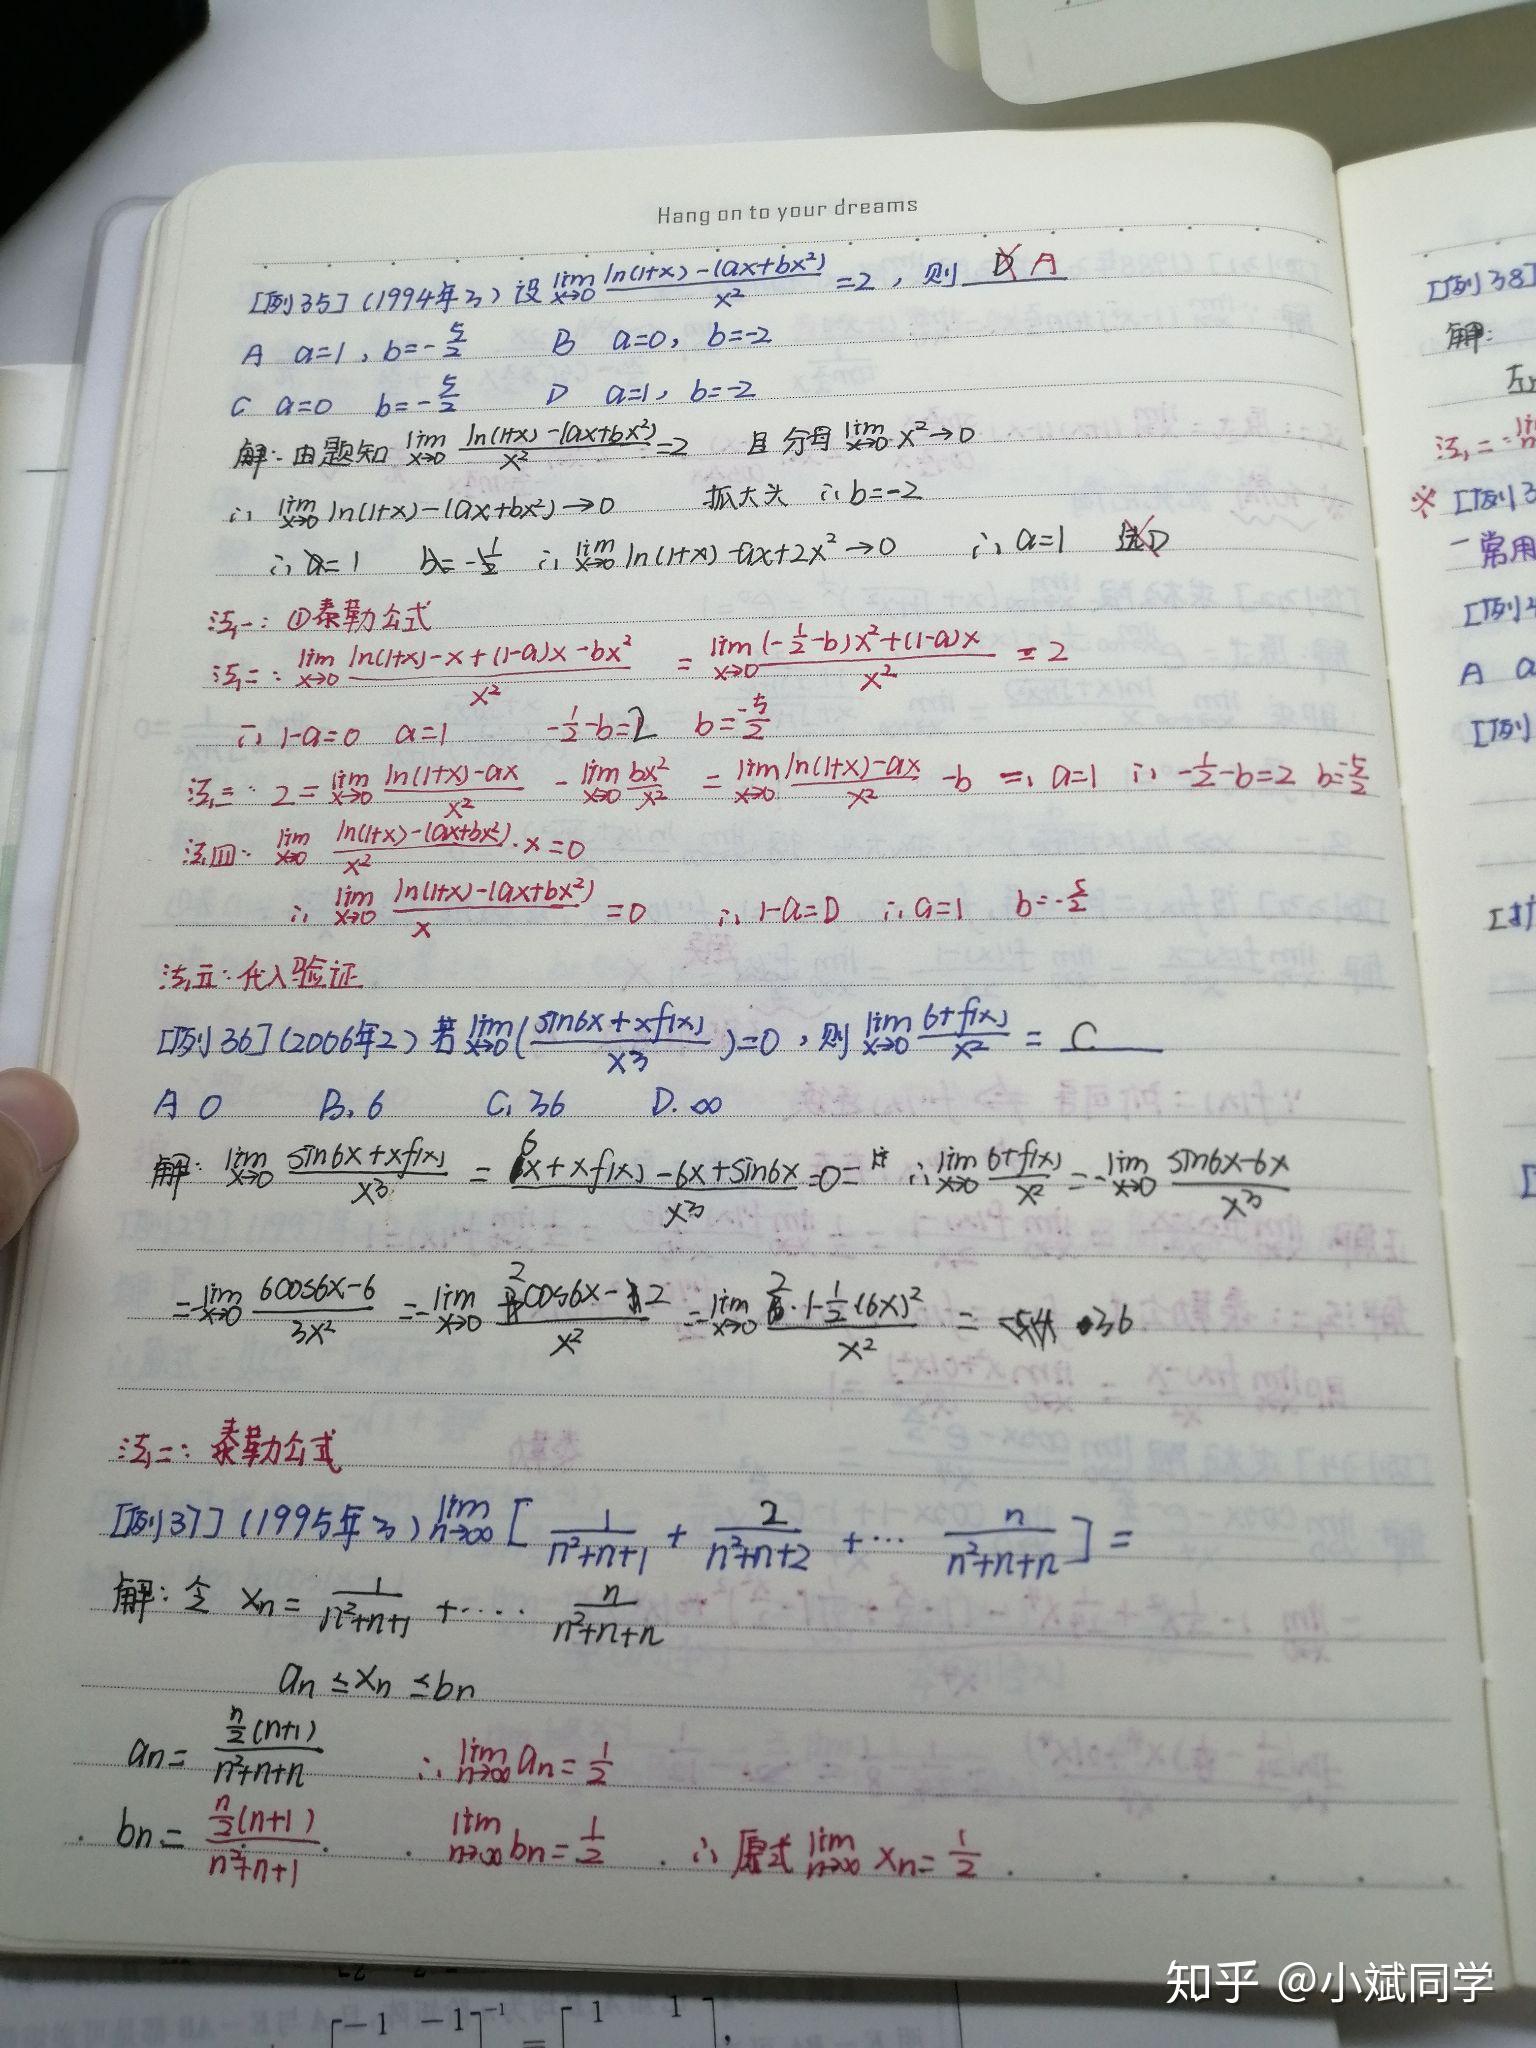 Hang on to your dreams
[例35] (1994年3) 设 lim x→0 (ln(1+x)-(ax+bx²))/x² =2, 则 D A
A a=1, b=-5/2 B a=0, b=-2
C a=0 b=-5/2 D a=1, b=-2
解: 由题知 lim x→0 (ln(1+x)-(ax+bx²))/x² =2 且分母 lim x→0 x²→0
∴ lim x→0 ln(1+x)-(ax+bx²)→0 抓大头 ∴b=-2
∴a=1 b=-1/2 ∴ lim x→0 ln(1+x)-ax+2x²→0 ∴a=1 选D
法一: ①泰勒公式
法二: lim x→0 (ln(1+x)-x+(1-a)x-bx²)/x² = lim x→0 ((-1/2-b)x²+(1-a)x)/x² =2
∴1-a=0 a=1 -1/2-b=2 b=-5/2
法三: 2= lim x→0 (ln(1+x)-ax)/x² - lim x→0 bx²/x² = lim x→0 (ln(1+x)-ax)/x² -b =∴ a=1 ∴ -1/2-b=2 b=-5/2
法四: lim x→0 (ln(1+x)-(ax+bx²))/x² ·x=0
∴ lim x→0 (ln(1+x)-(ax+bx²))/x =0 ∴1-a=0 ∴a=1 b=-5/2
法五: 代入验证
[例36] (2006年2) 若 lim x→0 ((sin6x+xf(x))/x³)=0, 则 lim x→0 (6+f(x))/x² = C
A 0 B. 6 C. 36 D. ∞
解: lim x→0 (sin6x+xf(x))/x³ = (6x+xf(x)-6x+sin6x)/x³ =0= ∴ lim x→0 (6+f(x))/x² =- lim x→0 (sin6x-6x)/x³
=- lim x→0 (6cos6x-6)/3x² =- lim x→0 (2cos6x-2)/x² =- lim x→0 (2·1-1/2(6x)²)/x² = 36
法二: 泰勒公式
[例37] (1995年3) lim n→∞ [ 1/(n²+n+1) + 2/(n²+n+2) +… n/(n²+n+n) ] =
解: 令 xn= 1/(n²+n+1) +…. n/(n²+n+n)
an≤xn≤bn
an= (n/2(n+1))/(n²+n+n) ∴ lim n→∞ an=1/2
bn= (n/2(n+1))/(n²+n+1) lim n→∞ bn=1/2 . ∴原式 lim n→∞ xn=1/2 .
[例38]
解:
法一:
※ [例3
一常用
[例
A a
[例
知乎 @小斌同学
[-1 -1]⁻¹ = [1 1],